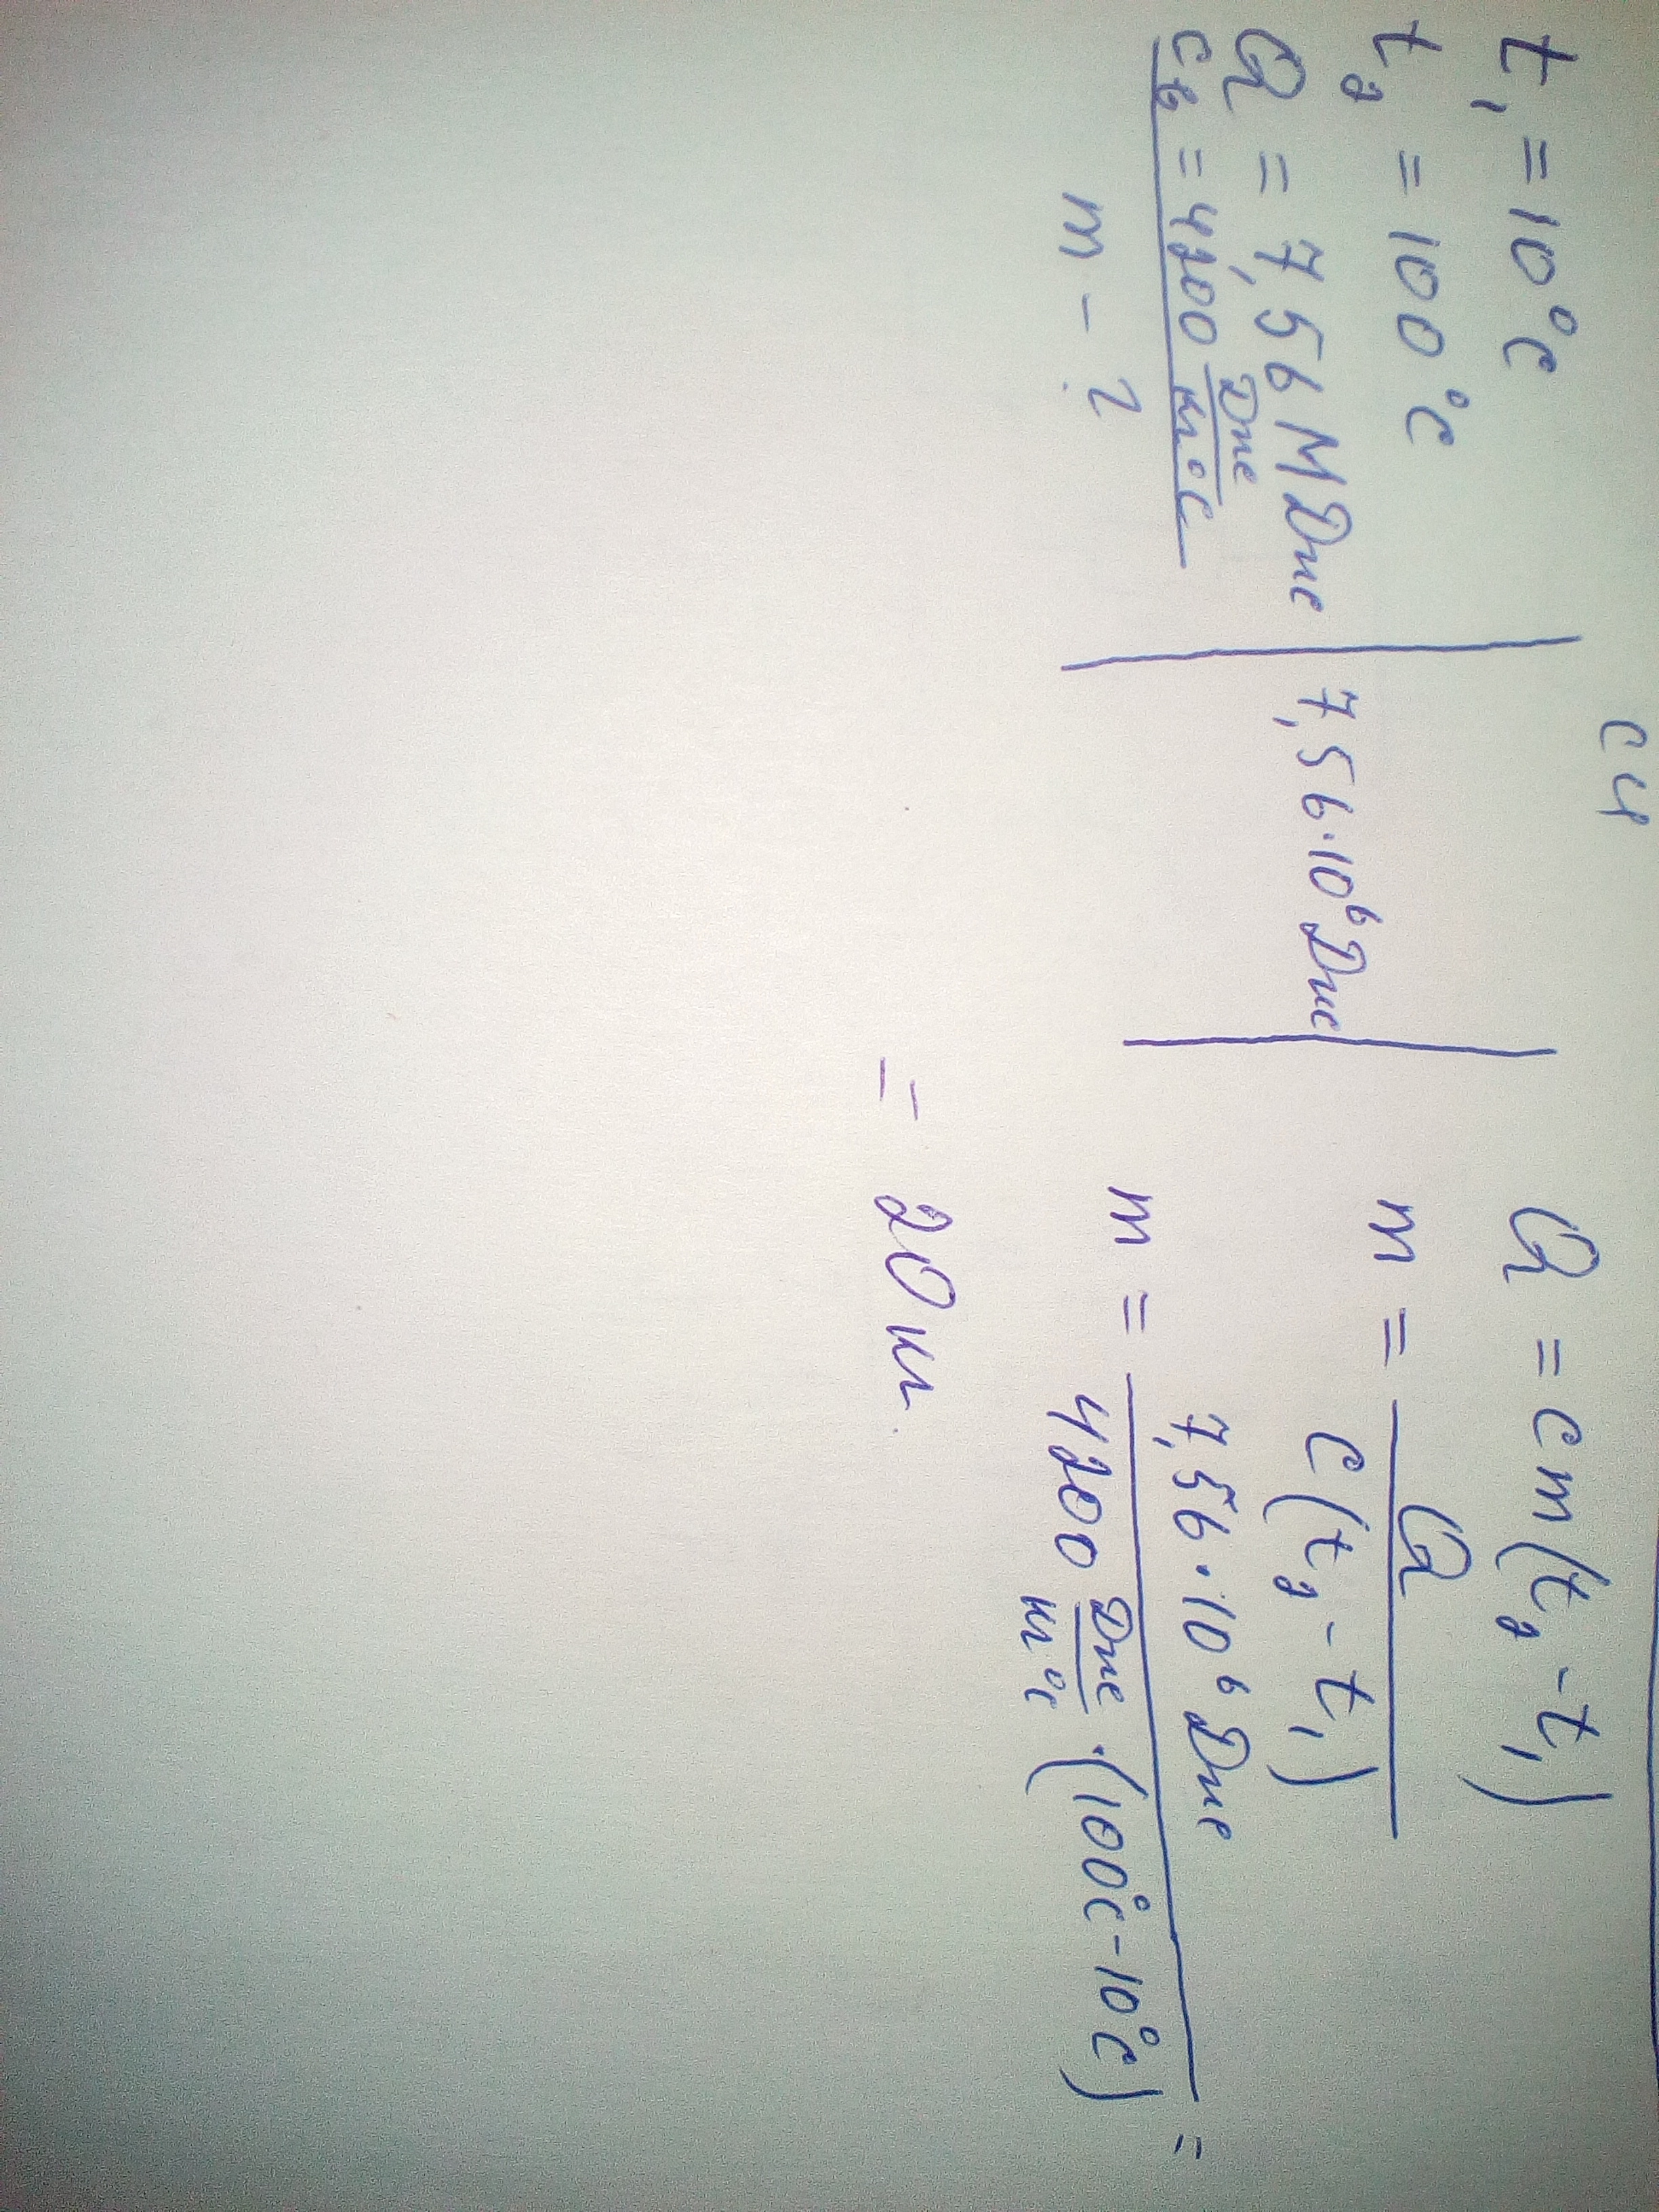 СИ
t₁ = 10°C
t₂ = 100°C
Q = 7,56 МДж
cв = 4200 Дж/кг°C
m - ?
7,56·10⁶ Дж
Q = cm(t₂ - t₁)
m = Q/c(t₂ - t₁)
m = 7,56·10⁶ Дж/4200 Дж/кг°C · (100°C - 10°C) =
= 20 кг.